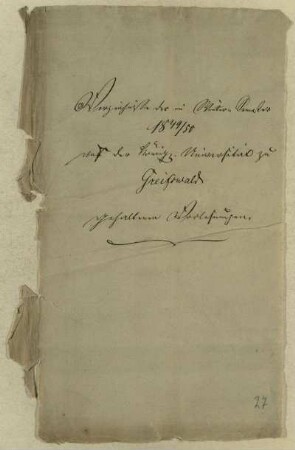 Verzeichniss der im Winter Semester
1849/50
auf der Königl. Universität zu
Greifswald
gehaltenen Vorlesungen.
27